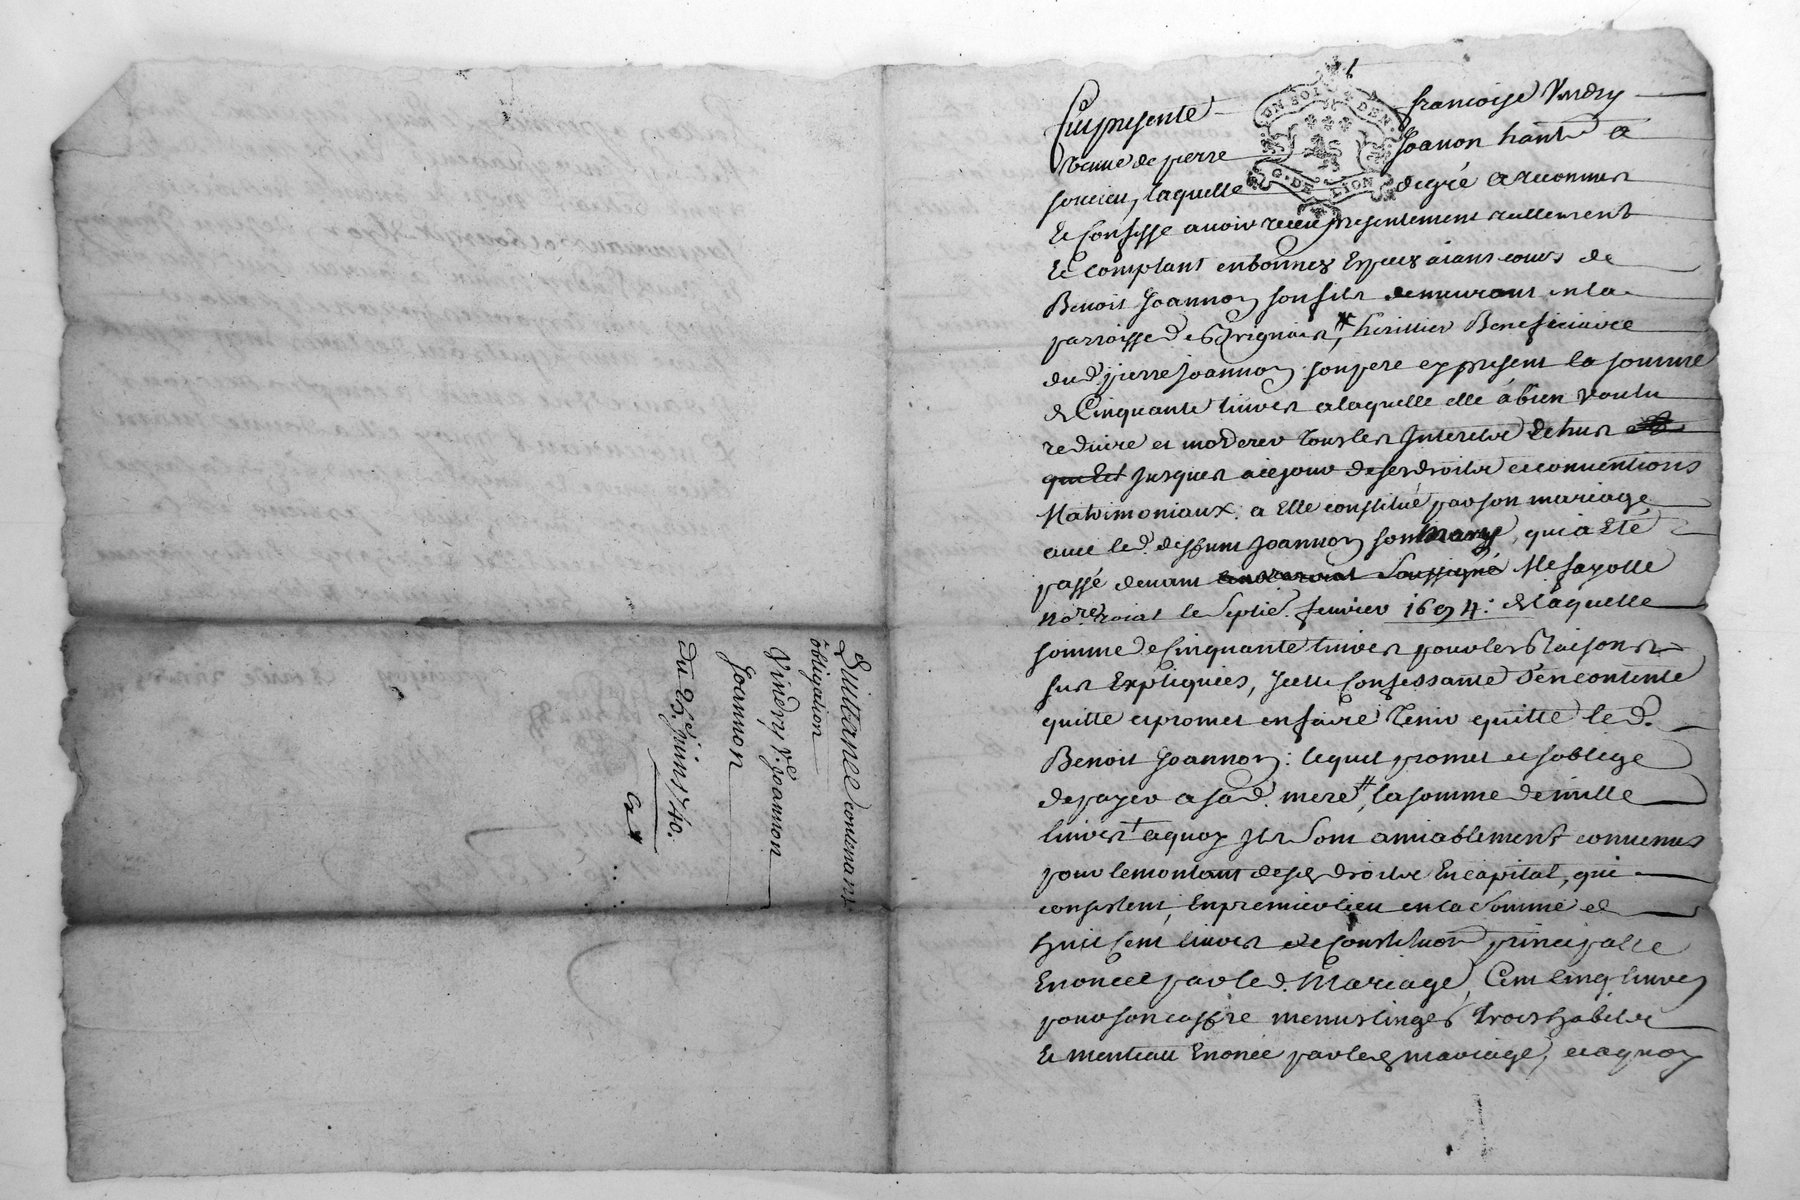 Quittance contenant
obligation
Vindry v.e Joannon
Joannon
Du 25.e juin 1740.
UN SOL DEN.
G. DE LION
Fut presente françoise Vindry
veuve de pierre Joanon hante a
sourcieu, laquelle degré a reconnu
Et Confesse avoir receu presentement reellement
Et Comptant en bonnes Especes aiant cours de
Benoit Joannon son fils demeurant en la
parroisse de Savignieu, herittier Beneficiaire
dud. pierre Joannon son pere cy present la somme
de Cinquante livres a laquelle elle à bien voulu
reduire et moderer tous les Interets Echus
qui Est Jusques a ce jour de ses droits et conventions
Matrimoniaux a Elle constitué par son mariage
avec led. deffunt Joannon son mary, qui à Eté
passé devant Me fayolle
no.re roial le Septie. fevrier 1694: de laquelle
somme de Cinquante livres pour les Raisons
sus Expliquées, Jcelle Confessante S'en contente
quitte et promet en faire tenir quitte le d.
Benoit Joannon: lequel promet et s'oblige
de payer a sa d. mere, la somme de mille
livres a quoy Jls Sont amiablement convenus
pour le montant de ses droits En capital, qui
consistent, En premier lieu en la Somme de
huit Cent livres de Constituon principalle
Enoncée par le d. Mariage, Cent Cinq livres
pour son coffre menus linges trois habits
Et menteau Enoncé par led mariage, et a quoy